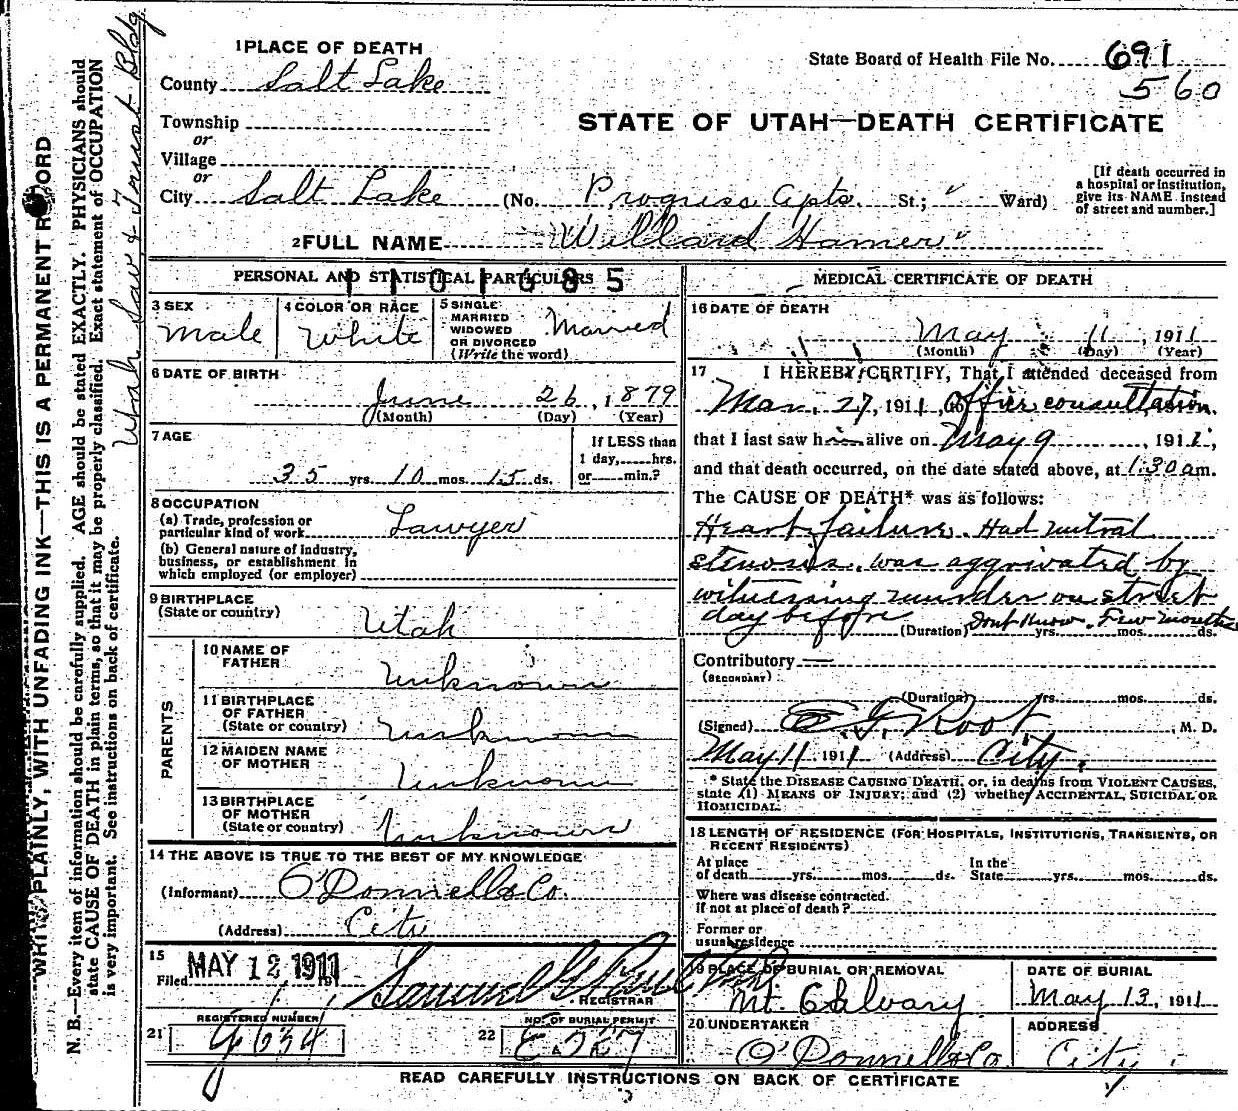 1 PLACE OF DEATH
County Salt Lake
Township
or
Village
or
City Salt Lake (No. Progress Apts. St; Ward)
State Board of Health File No. 691
560
STATE OF UTAH—DEATH CERTIFICATE
[If death occurred in
a hospital or institution,
give its NAME instead
of street and number.]
2 FULL NAME Willard Hamer
PERSONAL AND STATISTICAL PARTICULARS
1101685
3 SEX
Male
4 COLOR OR RACE
White
5 SINGLE
MARRIED
WIDOWED
OR DIVORCED
(Write the word)
Married
6 DATE OF BIRTH
June 26, 1879
(Month) (Day) (Year)
7 AGE
35 yrs. 10 mos. 15 ds.
If LESS than
1 day, hrs.
or min.?
8 OCCUPATION
(a) Trade, profession or
particular kind of work Lawyer
(b) General nature of industry,
business, or establishment in
which employed (or employer)
9 BIRTHPLACE
(State or country)
Utah
PARENTS
10 NAME OF
FATHER
Unknown
11 BIRTHPLACE
OF FATHER
(State or country)
Unknown
12 MAIDEN NAME
OF MOTHER
Unknown
13 BIRTHPLACE
OF MOTHER
(State or country)
Unknown
14 THE ABOVE IS TRUE TO THE BEST OF MY KNOWLEDGE
(Informant) O'Donnell & Co.
(Address) City
15
Filed MAY 12 1911 191
Samuel G. Paul
REGISTRAR
21 REGISTERED NUMBER
22 NO. OF BURIAL PERMIT
MEDICAL CERTIFICATE OF DEATH
16 DATE OF DEATH
May 11, 1911
(Month) (Day) (Year)
17 I HEREBY CERTIFY, That I attended deceased from
Mar. 27, 1911, to office consultation.
that I last saw him alive on May 9, 1911,
and that death occurred, on the date stated above, at 1:30 am.
The CAUSE OF DEATH* was as follows:
Heart failure. Had mitral
stenosis. was aggrivated by
witnessing murder on street
day before
(Duration) Dont Know. Few months yrs. mos. ds.
Contributory
(SECONDARY)
(Duration) yrs. mos. ds.
(Signed) E. G. Root, M. D.
May 11, 1911 (Address) City.
* State the DISEASE CAUSING DEATH, or, in deaths from VIOLENT CAUSES,
state (1) MEANS OF INJURY; and (2) whether ACCIDENTAL, SUICIDAL OR
HOMICIDAL.
18 LENGTH OF RESIDENCE (FOR HOSPITALS, INSTITUTIONS, TRANSIENTS, OR
RECENT RESIDENTS)
At place
of death yrs. mos. ds.
In the
State yrs. mos. ds.
Where was disease contracted.
If not at place of death?
Former or
usual residence
19 PLACE OF BURIAL OR REMOVAL
Mt. Calvary
DATE OF BURIAL
May 13, 1911
20 UNDERTAKER
O'Donnell & Co
ADDRESS
City
READ CAREFULLY INSTRUCTIONS ON BACK OF CERTIFICATE
WRITE PLAINLY, WITH UNFADING INK—THIS IS A PERMANENT RECORD
N. B.—Every item of information should be carefully supplied. AGE should be stated EXACTLY. PHYSICIANS should
state CAUSE OF DEATH in plain terms, so that it may be properly classified. Exact statement of OCCUPATION
is very important. See instructions on back of certificate.
Utah Sav & Trust Bldg